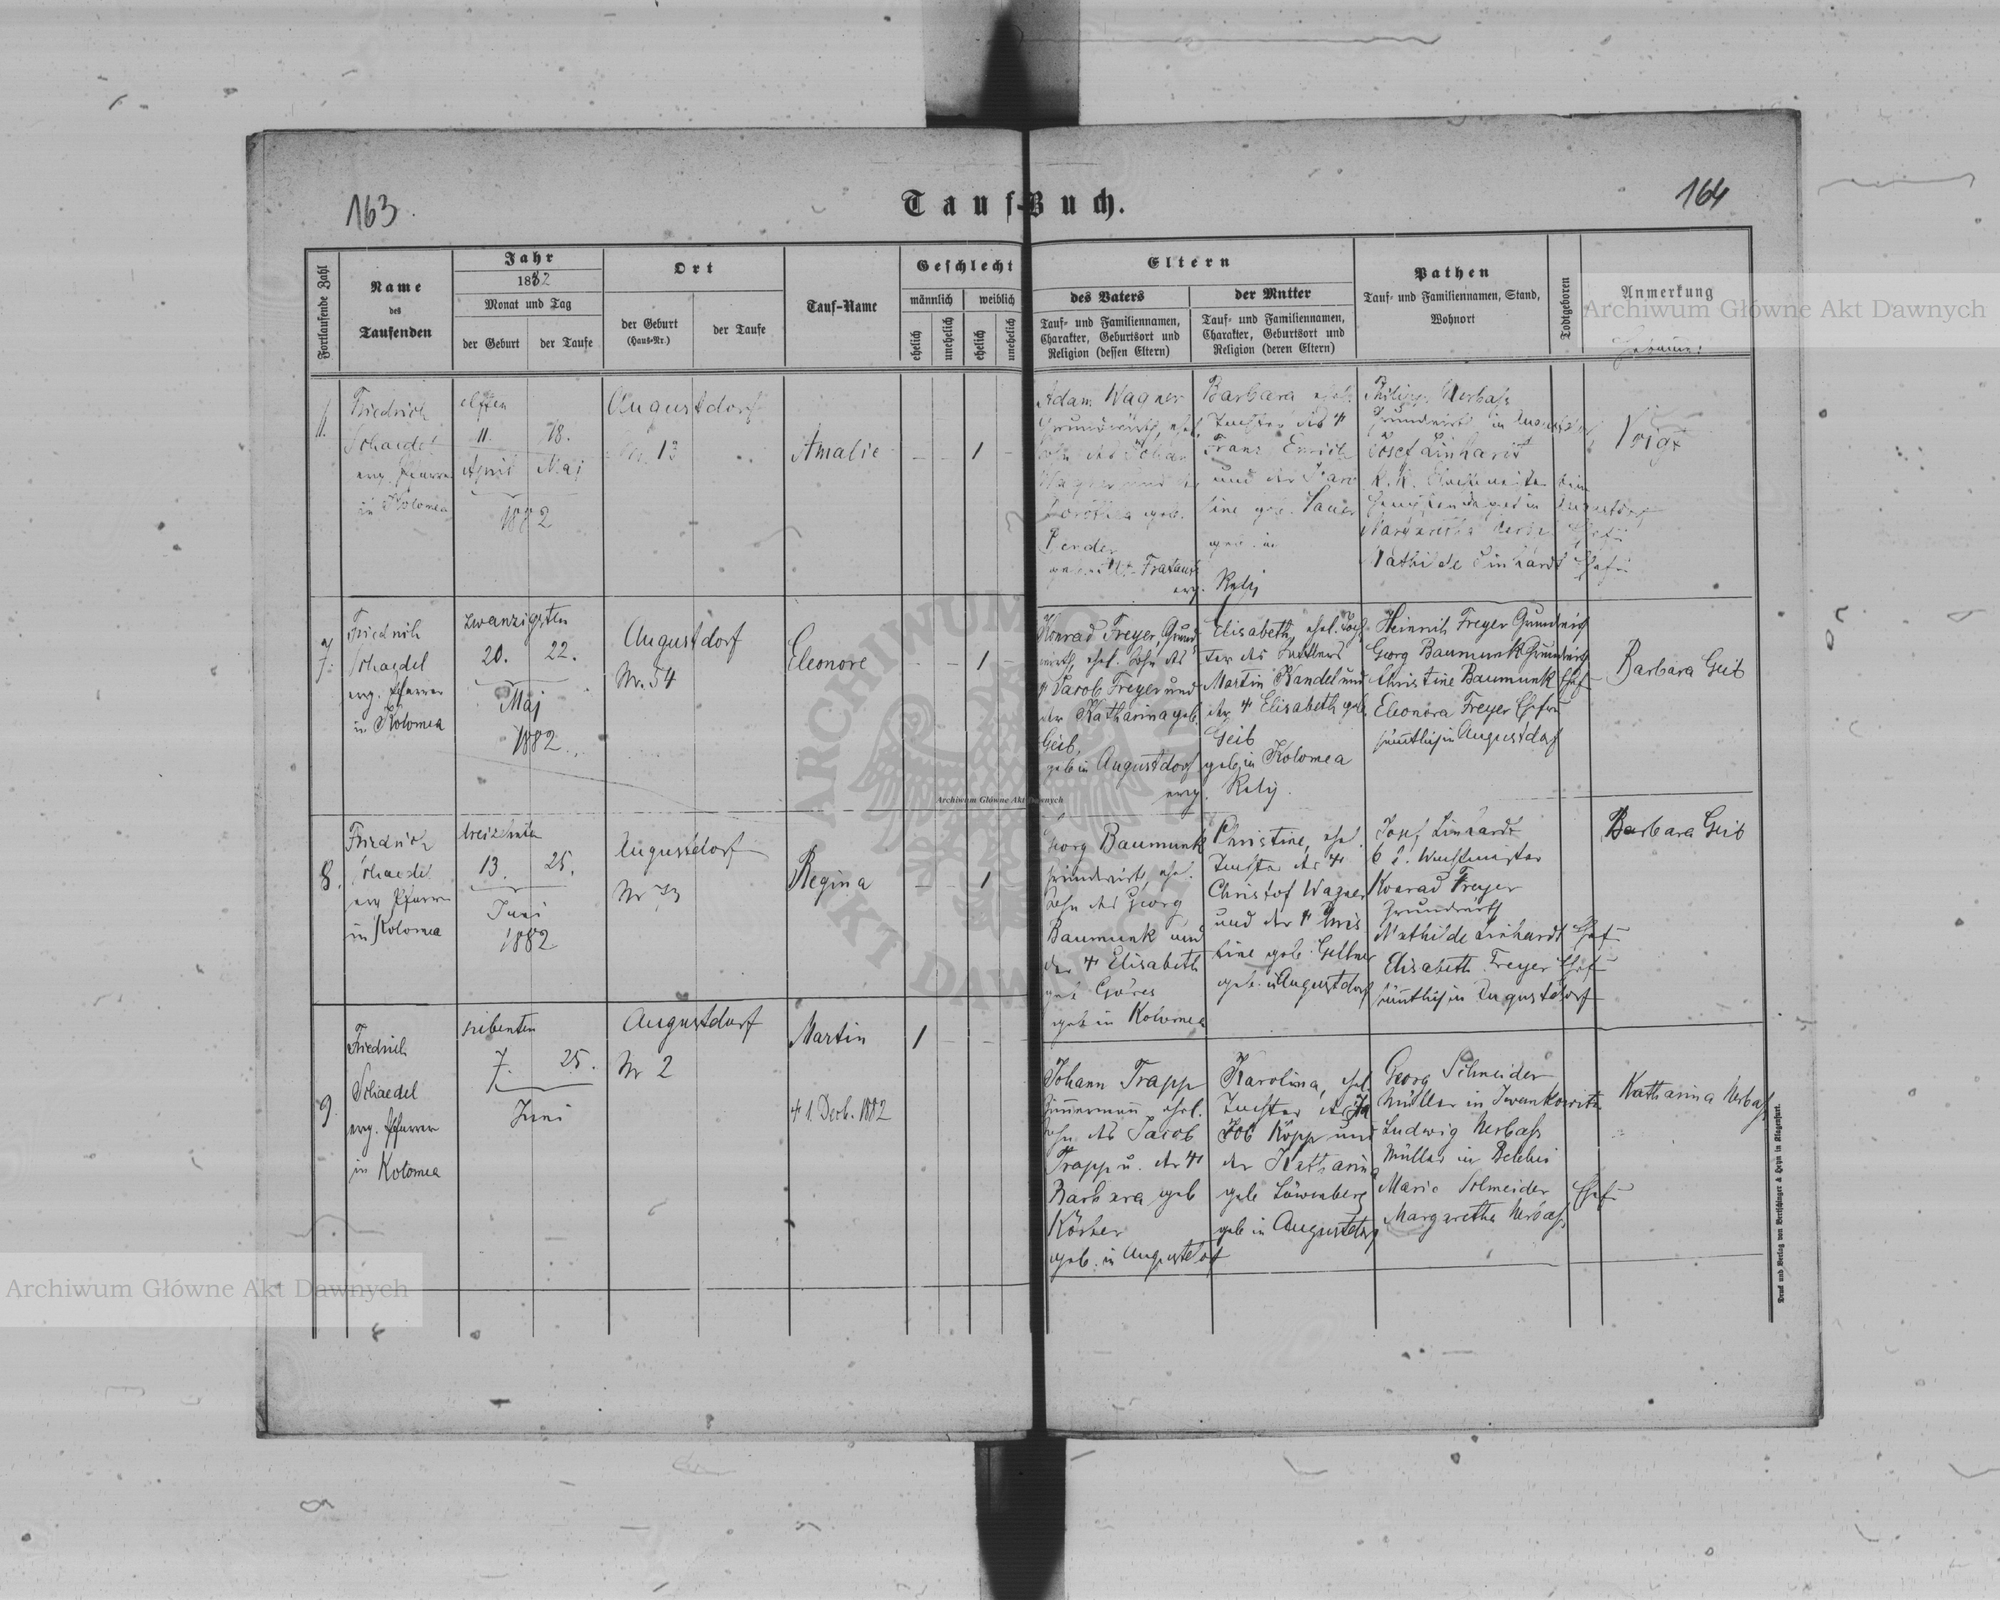 163
Tauf-Buch.
164
Fortlaufende Zahl
Name
des
Taufenden
Jahr
1882
Monat und Tag
der Geburt
der Taufe
Ort
der Geburt
(Haus-Nr.)
der Taufe
Tauf-Name
Geschlecht
männlich
weiblich
ehelich
unehelich
ehelich
unehelich
Eltern
des Vaters
Tauf- und Familiennamen,
Charakter, Geburtsort und
Religion (dessen Eltern)
der Mutter
Tauf- und Familiennamen,
Charakter, Geburtsort und
Religion (deren Eltern)
Pathen
Tauf- und Familiennamen, Stand,
Wohnort
Todtgeboren
Anmerkung
Archiwum Główne Akt Dawnych
Friedrich
Schaedel
evg. Pfarrer
in Kolomea
elften
11.
18.
April
Maj
1882
Augustdorf
Nr. 13
Amalie
1
Adam Wagner
Grundwirth, ehel.
Sohn des Johan
Wagner und der
Dorothea geb.
evg.
Barbara ehel.
Tochter des †
Franz Emrich
und der Karo
line geb. Sauer
geb. in
Relig
Philipp Nerbass
Grundwirth in Augustdorf
Josef Linhardt
K. K.
Mathilde Linhardt Ehef
Voigt
7.
Friedrich
Schaedel
evg. Pfarrer
in Kolomea
zwanzigsten
20.
22.
Maj
1882
Augustdorf
Nr. 54
Eleonore
1
Konrad Freyer, Grund
wirth, ehel. Sohn des
† Jacob Freyer und
der Katharina geb.
Geib,
geb in Augustdorf
evg.
Elisabeth, ehel. Toch
ter des
Martin Kandel und
der † Elisabeth geb.
Geib
geb. in Kolomea
Relig.
Heinrich Freyer Grundwirth
Georg Baumunk Grundwirth
Christine Baumunk Ehef
Eleonora Freyer Ehefr
sämtlich in Augustdorf
Barbara Geib
8.
Friedrich
Schaedel
evg Pfarrer
in Kolomea
dreizehnten
13.
25.
Juni
1882
Augustdorf
Nr
Regina
1
Georg Baumunk
Grundwirth, ehel.
Sohn des Georg
Baumunk und
der † Elisabeth
geb Göres
geb in Kolomea
Christine, ehel.
Tochter des †
Christof Wagner
und der † Chris
tine geb. Geltner
geb. in Augustdorf
Josef Linhardt
k. k. Wachtmeister
Konrad Freyer
Grundwirth
Mathilde Linhardt Ehef
Elisabeth Freyer Ehef
sämtlich in Augustdorf
Barbara Geib
9
Friedrich
Schaedel
evg. Pfarrer
in Kolomea
siebenten
7.
25.
Juni
Augustdorf
Nr 2
Martin
† 1. Decb. 1882
1
Johann Trapp
Zimmermann ehel.
Sohn des Jacob
Trapp u. der †
Barbara geb
Körber
geb. in Augustdorf
Karolina, ehel.
Tochter des Ja
kob Köpp und
der Katharina
geb Löwenberg
geb in Augustdorf
Georg Schneider
Müller in Iwankowitz
Ludwig Nerbass
Müller in
Marie Schneider Ehef
Margaretha Nerbass
Katharina Nerbass
Druck und Verlag von Bertschinger & Heyn in Klagenfurt.
ARCHIWUM GŁÓWNE AKT DAWNYCH
Archiwum Główne Akt Dawnych
Archiwum Główne Akt Dawnych